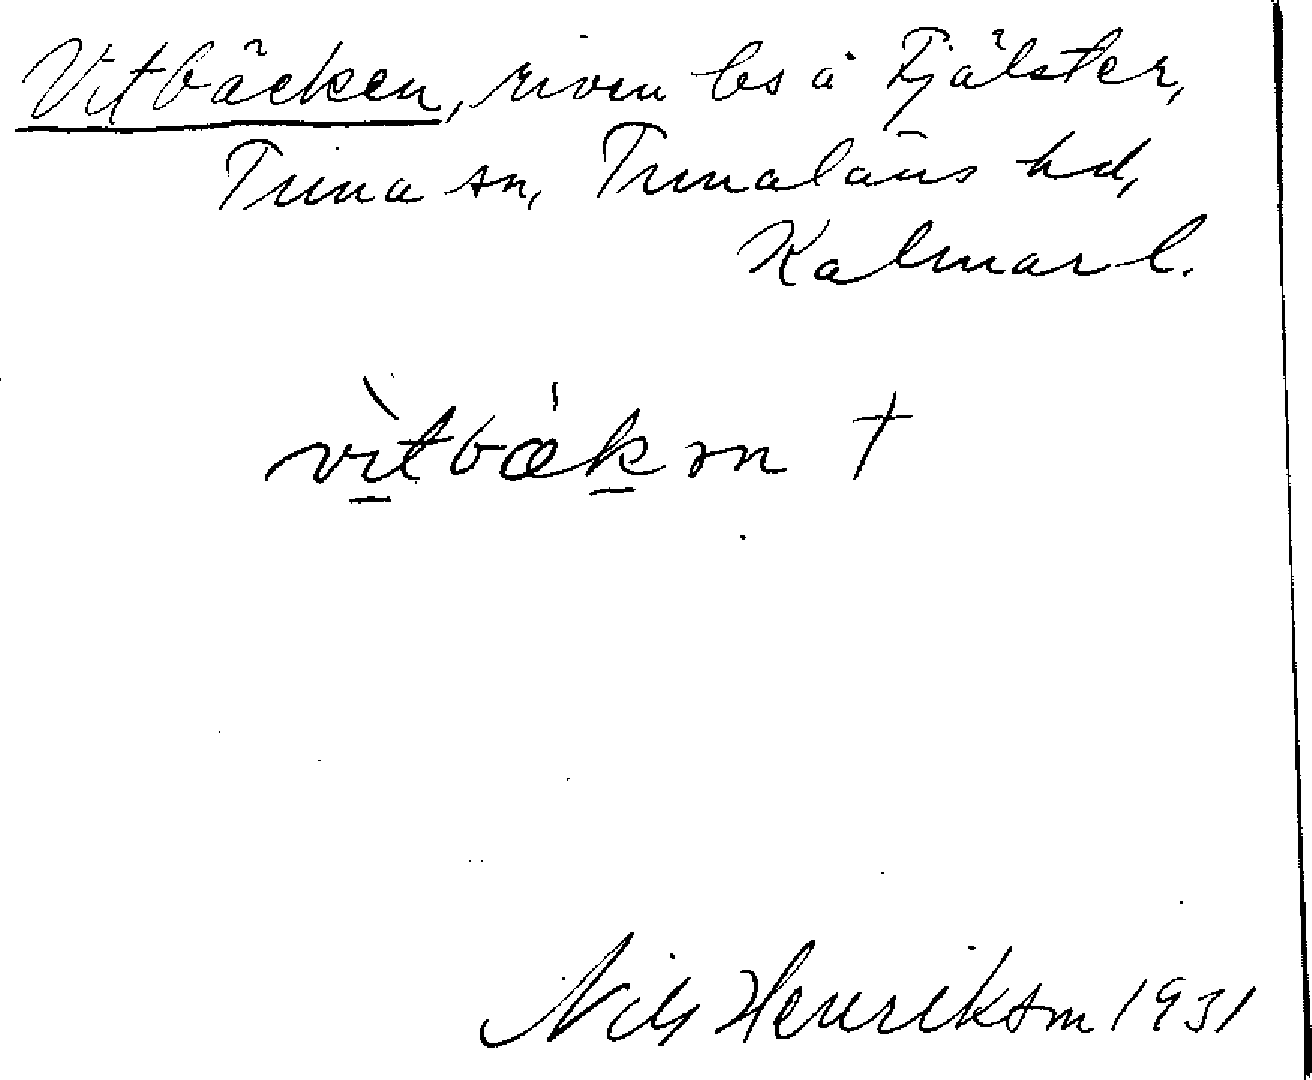 Vitbäcken, riven bs å Fjälster,
Tuna sn, Tunaläns hd,
Kalmar l.
vìtbǽkən †
Nils Henriksson 1931